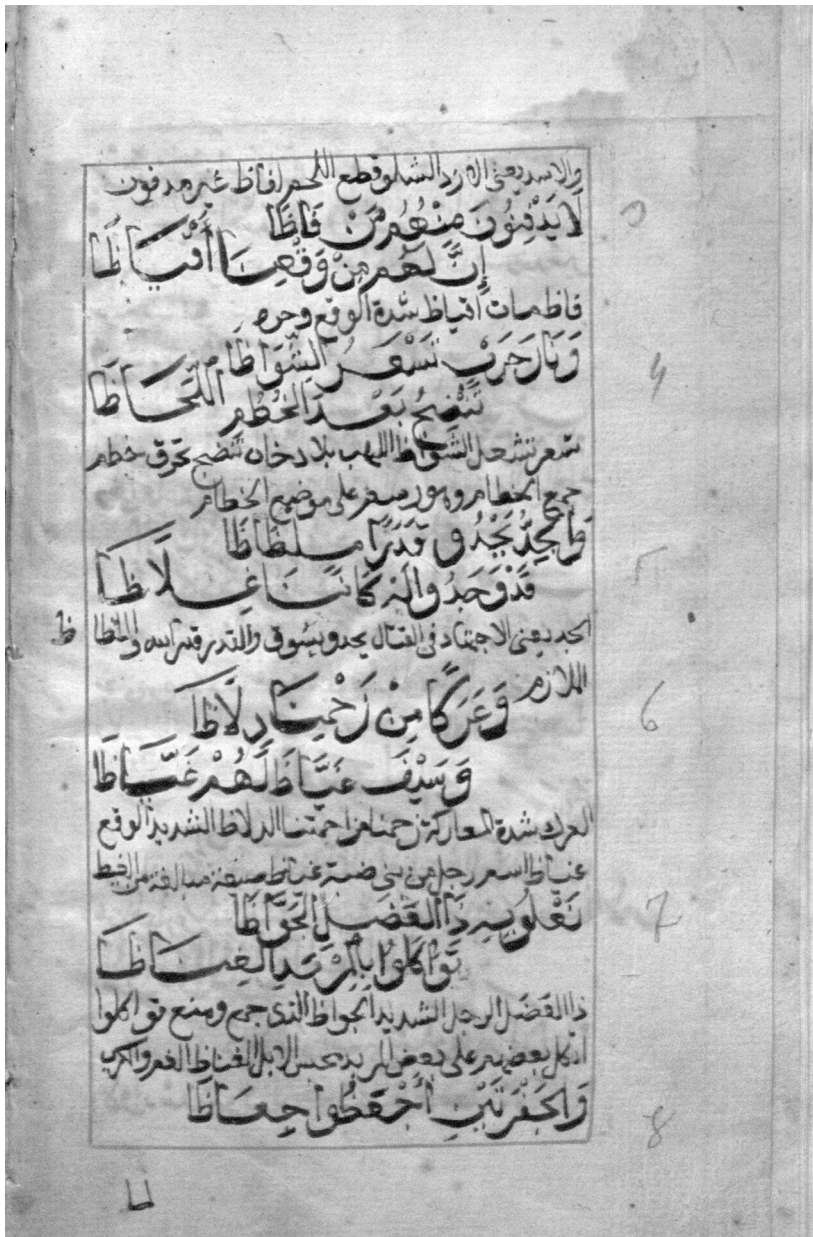 والاسد يعنى الازد الشلو قطع اللحم لفاظ غير مدفون
لَا يَدْفِنُونَ مِنْهُم مَنْ فَاظَا
إِنَّ لَهُم مِنْ وَقْعِنَا أَقْيَاظَا
فاظ مات اقياظ شدة الوقع وحره
وَنَارَ حَرْبٍ تَسْعَرُ الشُّوَاظَا
تَنْضِجُ بَعْدَ الخُطُمِ اللِّحَاظَا
تسعر تشعل الشواظ اللهب بلا دخان تنضج تحرق خطم
جمع الخطام وهو على موضع الخطام
وَالجِدُّ يَحْدُو قَدَرًا مِلْظَاظَا
قَدْ وَجَدُوا كَانَنَا غِلَاظَا
الجد يعنى الاجتهاد فى القتال يحدو يسوق والقدر قدر الله والملظا ظ
اللازم
وَعَرَكًا مِنْ زَحْمِنَا دِلَاظَا
وَسَيْفَ غَيَّاظٍ لَهُمْ غَيَّاظَا
العرك شدة المعاركة زحمنا مزاحمتنا الدلاظ الشديد الوقع
غياظ اسم رجل من بنى ضبة غياظ صفة مبالغة من الغيظ
نَعْلُو بِهِ ذَا العَضَلِ الجَوَّاظَا
تَوَاكَلُوا بِالمِرْبَدِ الغِنَاظَا
ذا العضل الرجل الشديد الجواظ الذى جمع ومنع تواكلوا
اتكل بعضهم على بعض المربد محبس الابل الغناظ الغم والكرب
وَالجُفْرَتَيْنِ أُحْفِظُوا حِفَاظَا
3
4
5
6
7
8